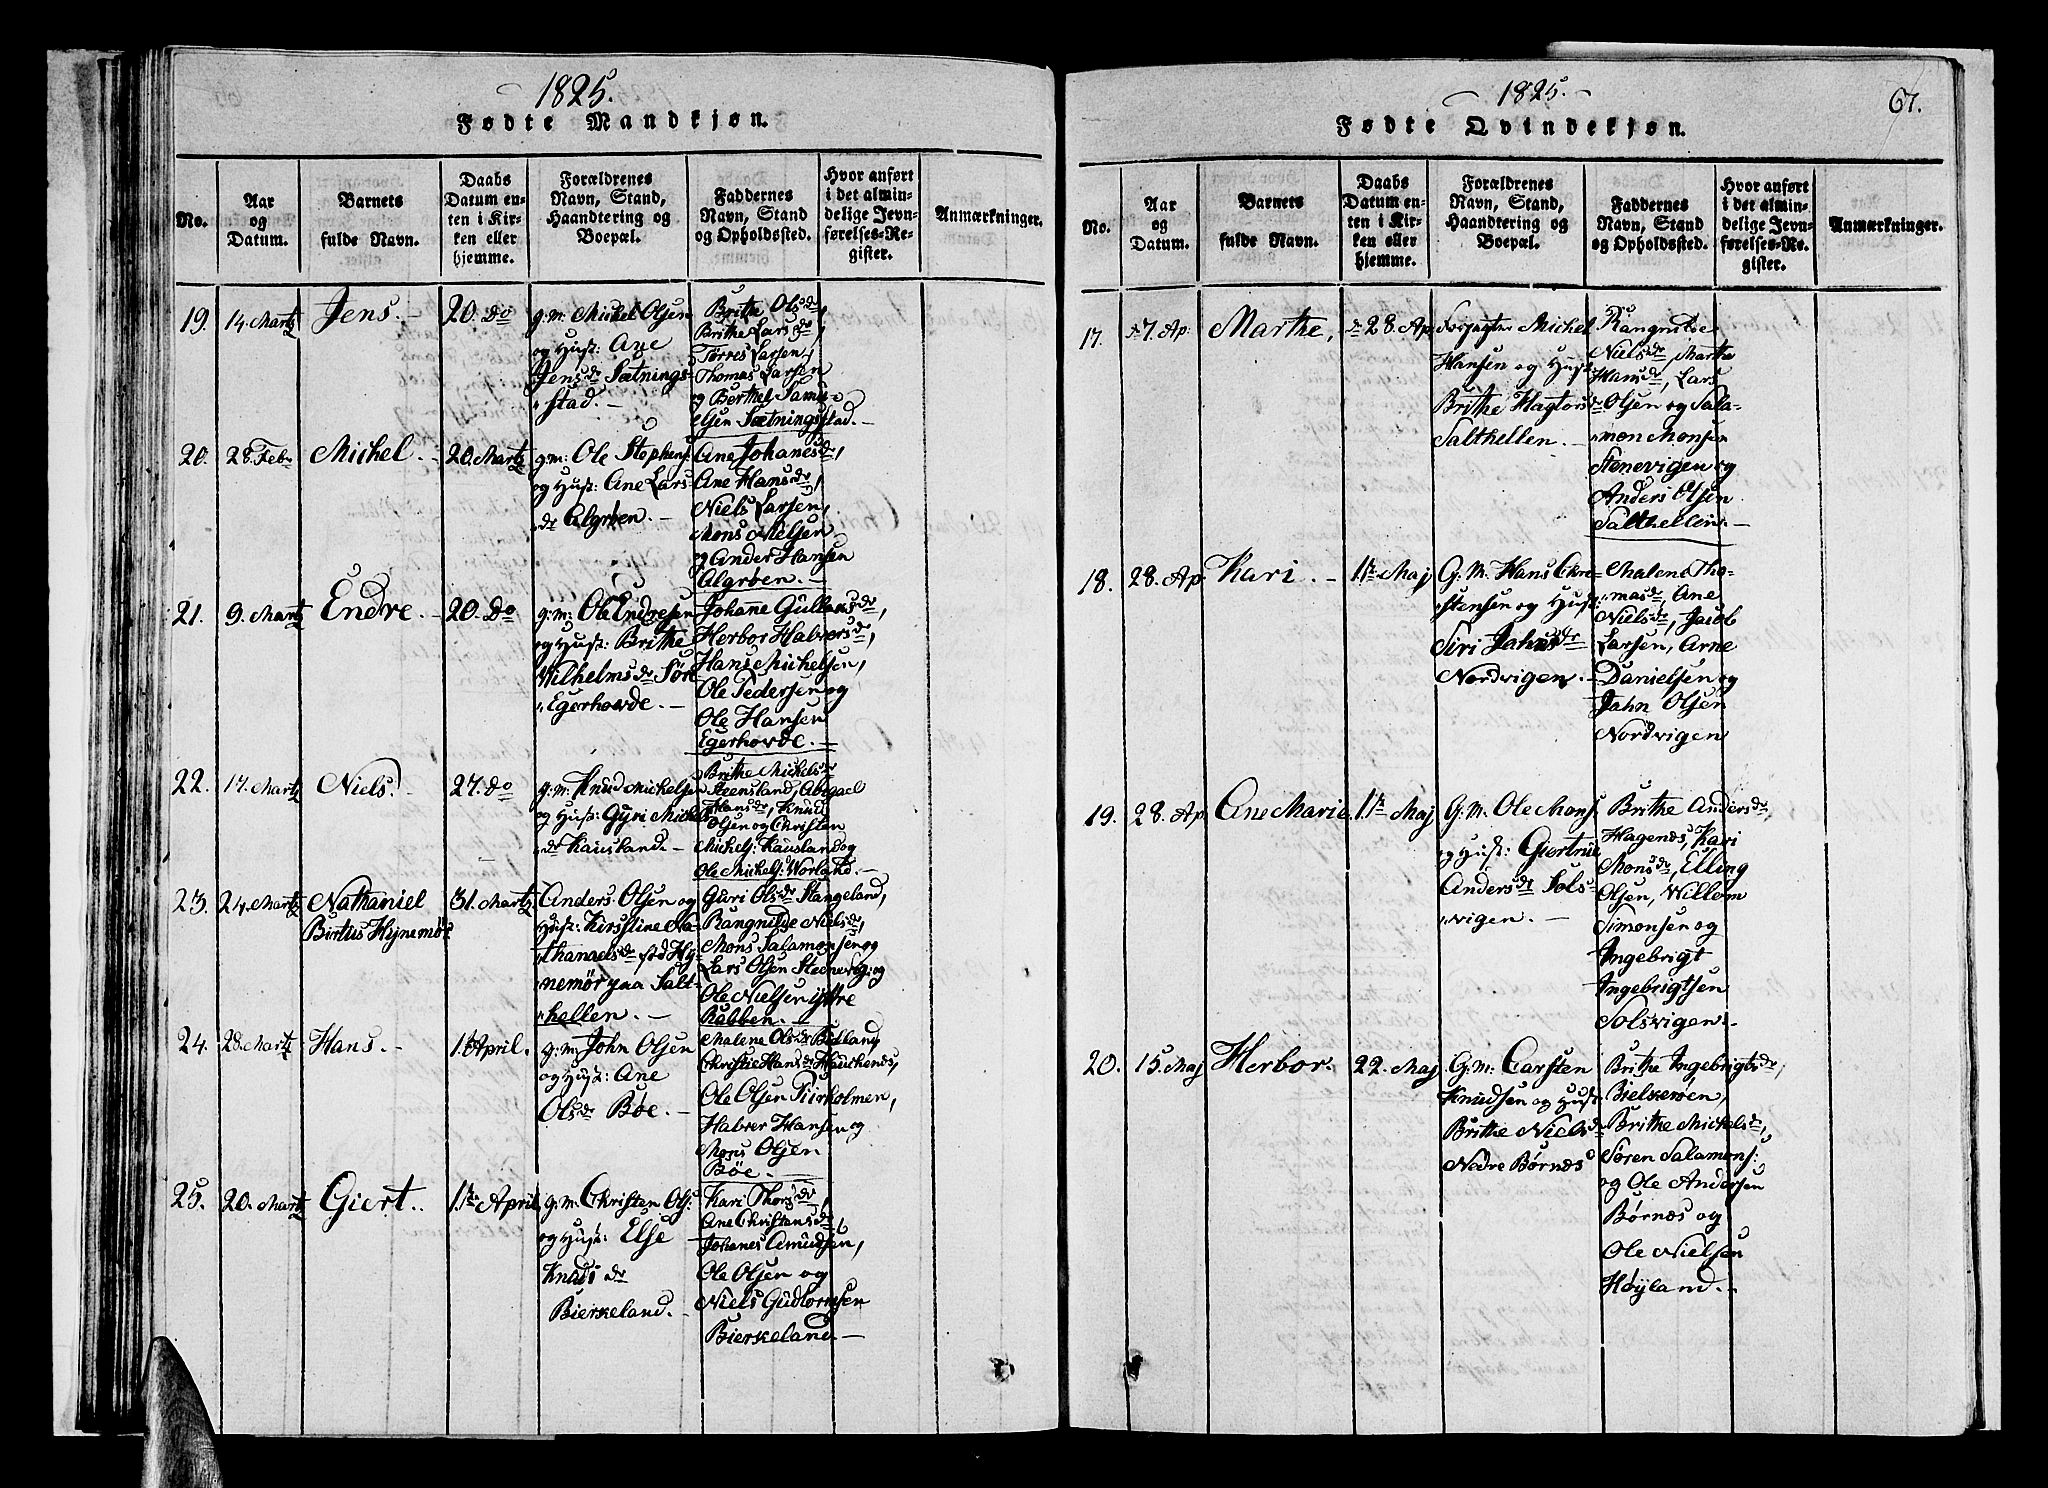 1825.
Fødte Mandkjøn.
No.
Aar
og
Datum.
Barnets
fulde Navn.
Daabs
Datum en-
ten i Kir-
ken eller
hjemme.
Forældrenes
Navn, Stand,
Haandtering og
Boepæl.
Faddernes
Navn, Stand
og Opholdssted.
Hvor anført
i det almin-
delige Jevn-
førelses-Re-
gister.
Anmærkninger.
19.
14. Martz
Jens.
20. do
g.m: Michel Olsen
og Hust: Ane
Jensdr Sætnings-
stad.
Brithe Olsdr
Brithe Larsdr
Tørres Larsen,
Thomas Larsen
og Berthel Samu-
elsen Sætningstad.
20.
28. Febr
Michel.
20. Martz
g.m: Ole Stephens:
og Hust: Ane Lars-
dr Algrøen.
Ane Johanesdr,
Ane Hansdr,
Niels Larsen,
Mons Nielsen
og Ander Hansen
Algrøen.
21.
9. Martz
Endre.
20. Do
g.m: Ole Endresen
og Hust: Brithe
Wilhelmsdr Søre
Egerhovde.
Johane Gullaksdr,
Herbor Habrersdr,
Hans Michelsen,
Ole Pedersen og
Ole Hansen
Egerhovde.
22.
17. Martz
Niels.
27. Do
g.m: Knud Michelsen
og Hust: Gyri Michels
dr Kausland.
Brithe Michelsdr
Steensland, Abigael
Hansdr, Knud
Olsen og Christen
Michels: Kausland og
Ole Michels: Worland.
23.
24. Martz
Nathaniel
Birtus Hynemør
31. Martz
Anders Olsen og
Hust: Kirstine Na-
thanaelsdr fød Hy-
nemør paa Salt-
hellen.
Guri Olsdr Stangeland,
Rangnilde Nielsdr,
Mons Salamonsen og
Lars Olsen Steenevig og
Ole Nielsen ytre
Rabben.
24.
28. Martz
Hans.
1te April.
g.m: John Olsen
og Hust: Ane
Olsdr Bøe.
Malene Olsdr
Christie Hansdr Haukenæs,
Ole Olsen Tiirholmen,
Habrer Hansen og
Mons Olsen
Bøe.
25.
20. Martz
Giert.
1te April
g.m: Christen Ols:
og Hust: Else
Knudsdr
Bierkeland.
Kari Thorsdr
Ane Christensdr,
Johanes Amundsen,
Ole Olsen og
Niels Gudtormsen
Bierkeland.
1825.
67.
Fødte Qvindekjøn.
No.
Aar
og
Datum.
Barnets
fulde Navn.
Daabs
Datum en-
ten i Kir-
ken eller
hjemme.
Forældrenes
Navn, Stand,
Haandtering og
Boepæl.
Faddernes
Navn, Stand
og Opholdssted.
Hvor anført
i det almin-
delige Jevn-
førelses-Re-
gister.
Anmærkninger.
17.
7. Ap:
Marthe,
28. Ap
Michel
Hansen og Hust
Brithe Hagtorsdr
Salthellen.
Rangnilde
Nielsdr, Marthe
Hansdr, Lars
Olsen og Sala-
mon Monsen
Stenevigen og
Anders Olsen
Salthellin.
18.
28. Ap
Kari.
1te Maj
G.M. Hans Chre-
stensen og Hust:
Siri Jahnsdr
Nordvigen.
Malene Tho-
masdr, Ane
Nielsdr, Jacob
Larsen, Arne
Danielsen og
Jahn Olsen
Nordvigen
19.
28. Ap
Ane Marie
1te Maj
G.m. Ole Mons:
og Hust: Giertrue
Andersdr Sols-
vigen.
Brithe Andersdr,
Hagenæs, Kari
Monsdr, Elling
Olsen, Willem
Simonsen og
Ingebrigt
Ingebrigtsen
Solsvigen.
20.
15. Maj
Herbor.
22. Maj
G.m: Carsten
Knudsen og Hust:
Brithe Nielsdr
Nedre Børnæs
Brithe Ingebrigtsdr,
Bielkerøen,
Brithe Michelsdr,
Søren Salamons:
og Ole Andersen
Børnæs og
Ole Nielsen
Høyland.